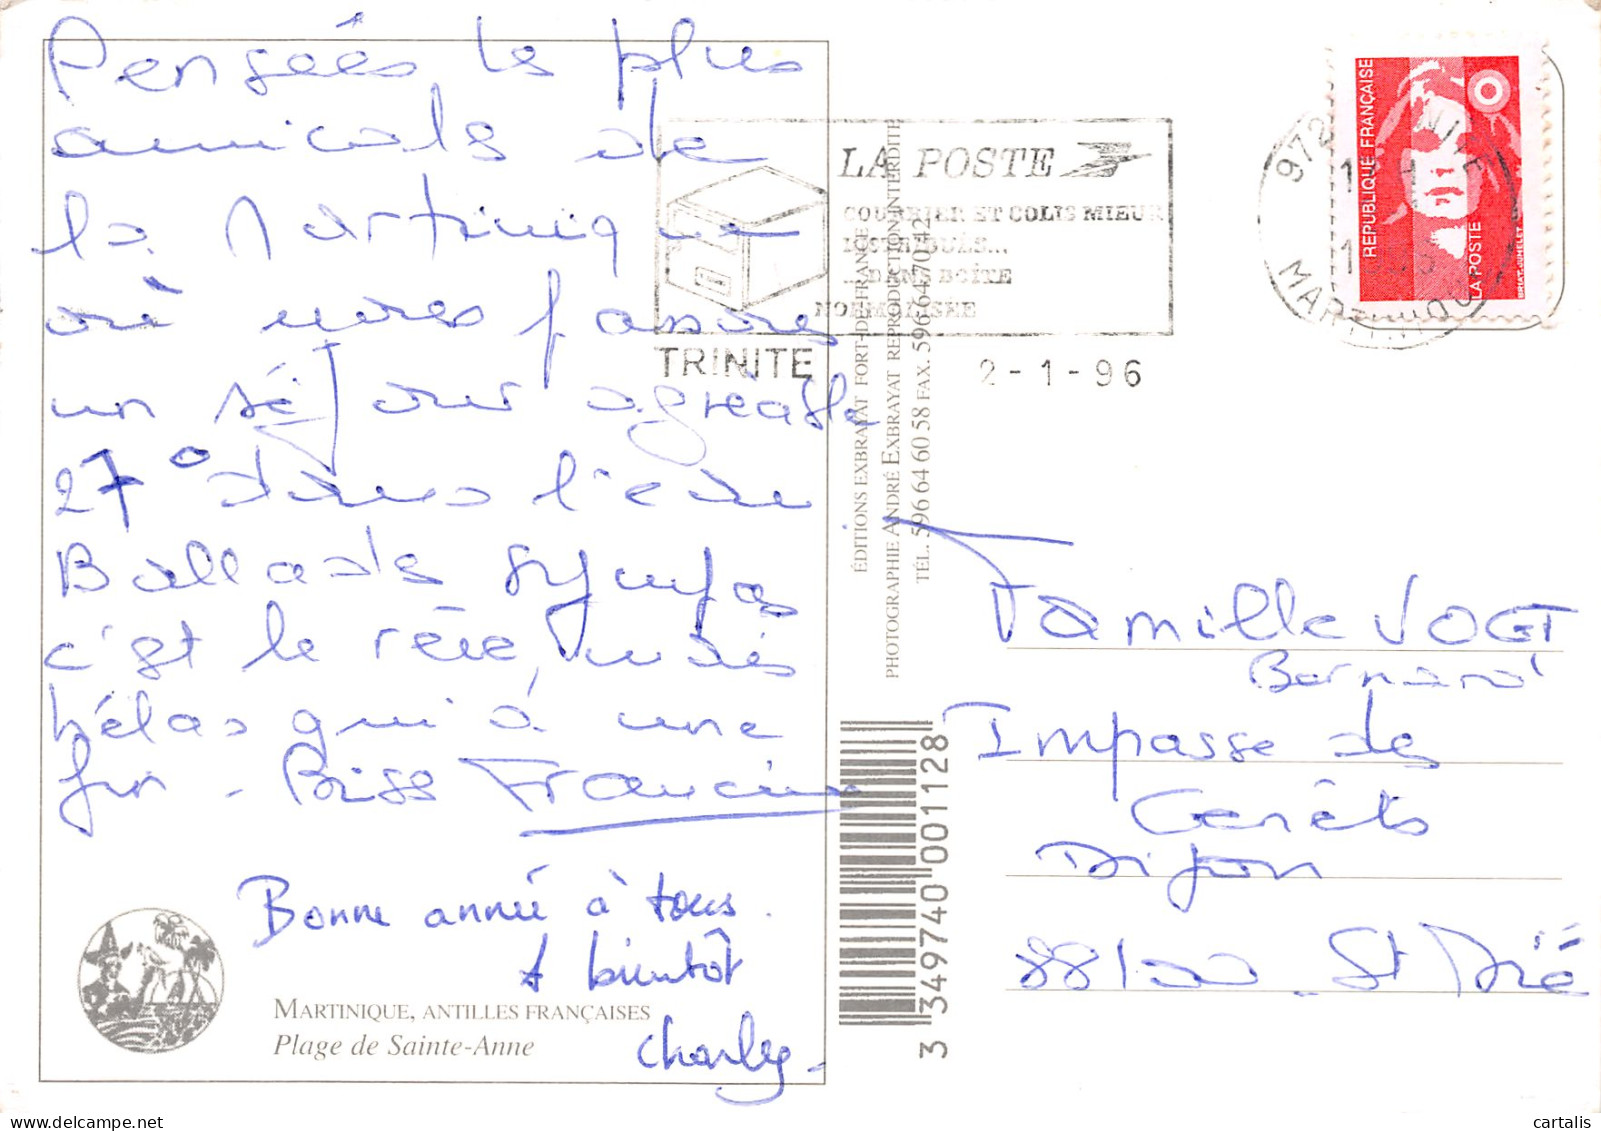 Pensées les plus
amicals de
la Martinique
où nous passons
un séjour agréable
27° dans l'eau
Ballades sympas
c'est le rêve, mais
hélas qui à une
fin - Biss Francine
Bonne année à tous.
A bientôt
Charley
MARTINIQUE, ANTILLES FRANÇAISES
Plage de Sainte-Anne
ÉDITIONS EXBRAYAT FORT-DE-FRANCE
PHOTOGRAPHIE ANDRÉ EXBRAYAT REPRODUCTION INTERDITE
TÉL. 596 64 60 58 FAX. 596 64 70 42
3 349740 001128
LA POSTE
COURRIER ET COLIS MIEUX
DISTRIBUÉS...
...DANS BOÎTE
NORMALISÉE
TRINITE
2-1-96
972
MARTINIQUE
REPUBLIQUE FRANÇAISE
LA POSTE
BRIAT-JUMELET
Famille VOGT
Bernard
Impasse des
Genêts
Dijon
88100 St Dié
cartalis